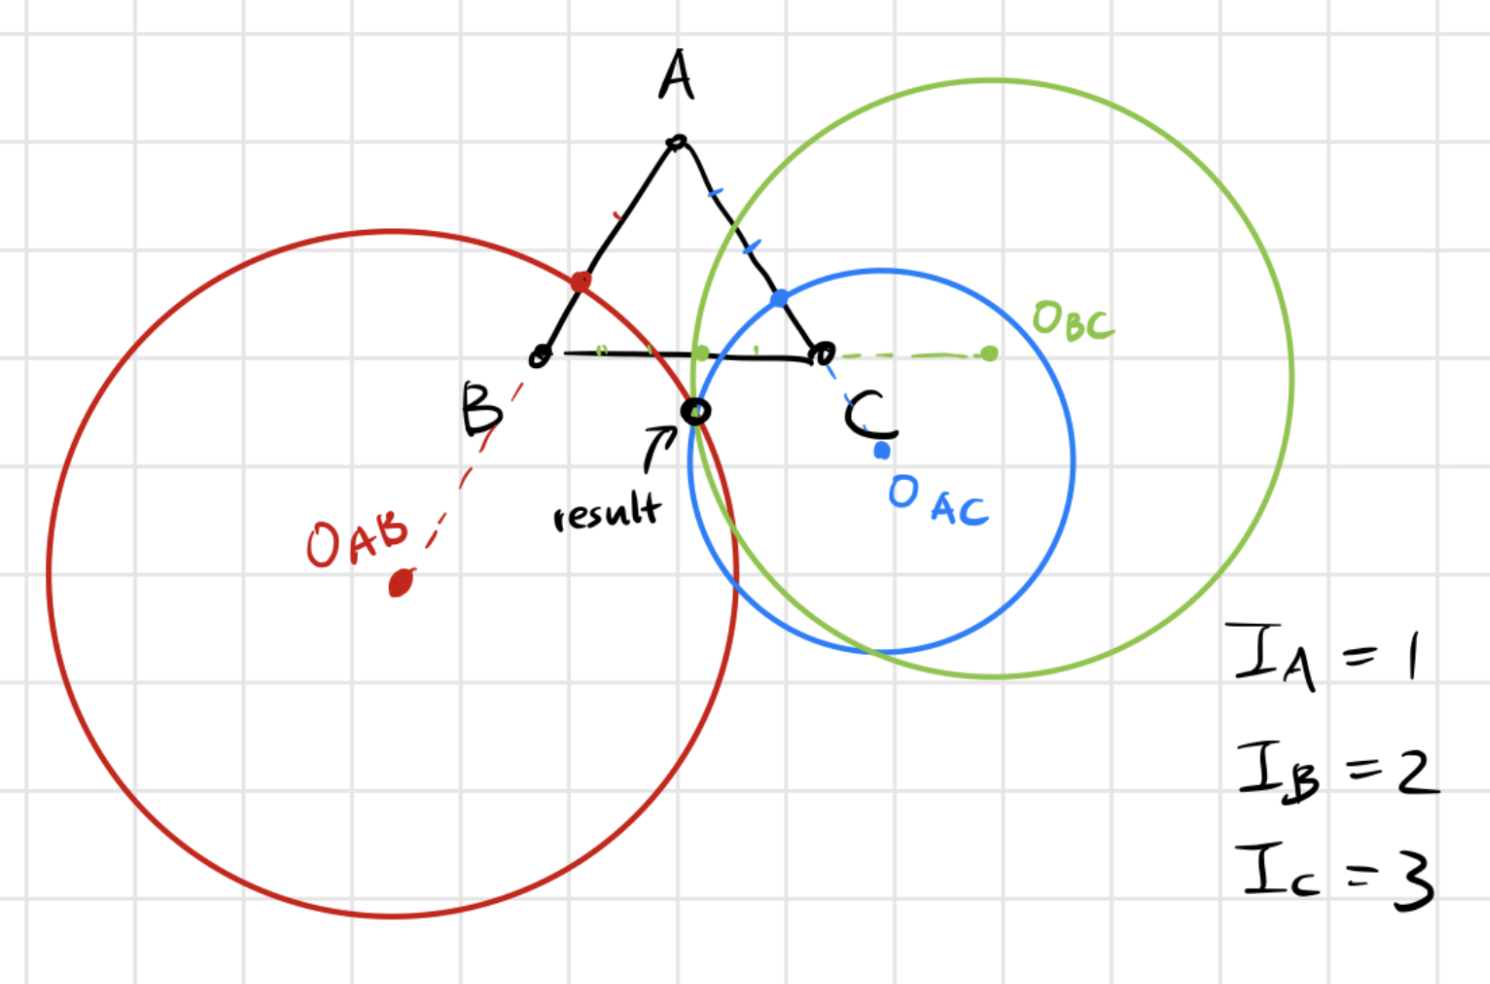 A
O_BC
B
C
O_AC
O_AB
result
I_A = 1
I_B = 2
I_C = 3